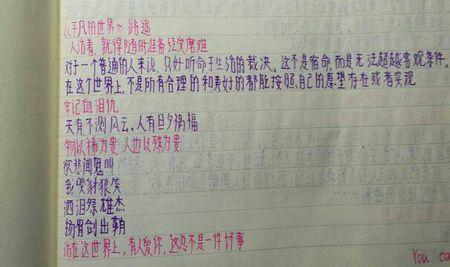 《平凡的世界》 路遥
人活着,就得随时准备经受磨难
对于一个普通的人来说,只好听命于生活的裁决。这不是宿命,而是无法超越客观条件。
在这个世界上,不是所有合理的和美好的都能按照自己的愿望存在或者实现
牢记血泪仇
天有不测风云,人有旦夕祸福
物以稀为贵 人也以稀为贵
欲悲闻鬼叫
我哭豺狼笑
洒泪祭雄杰
扬眉剑出鞘
活在这世界上,有人爱你,这总不是一件坏事
You ca